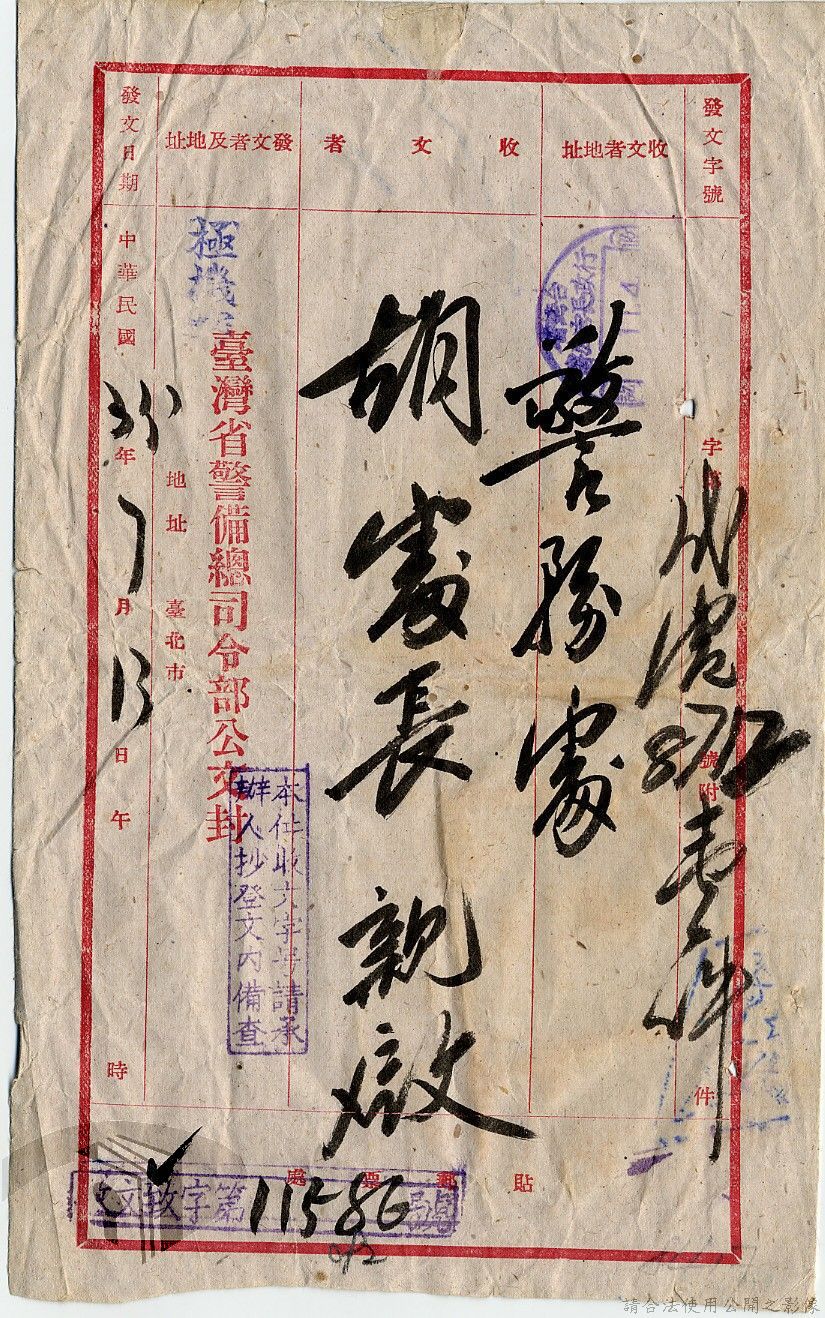 發文字號
字 號附 件
收文者地址
警務處
收文者
胡處長 親啟
發文者及地址
極機
臺灣省警備總司令部公文封
地址 臺北市
本件收文字号請承
辦人抄登文內備查
發文日期
中華民國 年 7 月 13 日 午 時
貼郵票處
字第 11586 號
請合法使用公開之影像